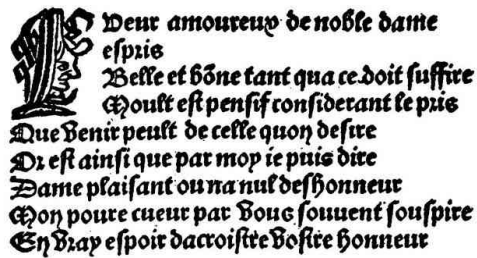 Cueur amoureux de noble dame
espris
Belle et bõne tant qua ce.doit suffire
Moult est pensif considerant le pris
Que venir peult de celle quon desire
Or est ainsi que par moy ie puis dire
Dame plaisant ou na nul deshonneur
Mon poure cueur par vous souuent souspire
En vray espoir dacroistre vostre honneur